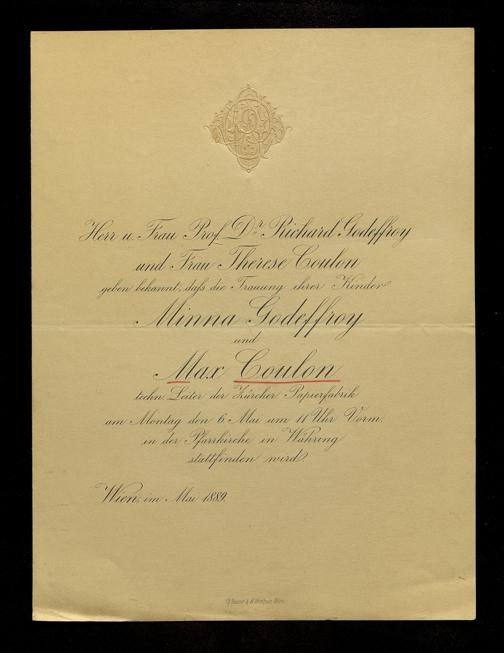 Herr u. Frau Prof. Dr. Richard Godeffroy
und Frau Therese Coulon
geben bekannt, daß die Trauung ihrer Kinder
Minna Godeffroy
und
Max Coulon
techn. Leiter der Zürcher Papierfabrik
am Montag den 6. Mai um 11 Uhr Vorm.
in der Pfarrkirche in Währing
stattfinden wird.
Wien, im Mai 1889.